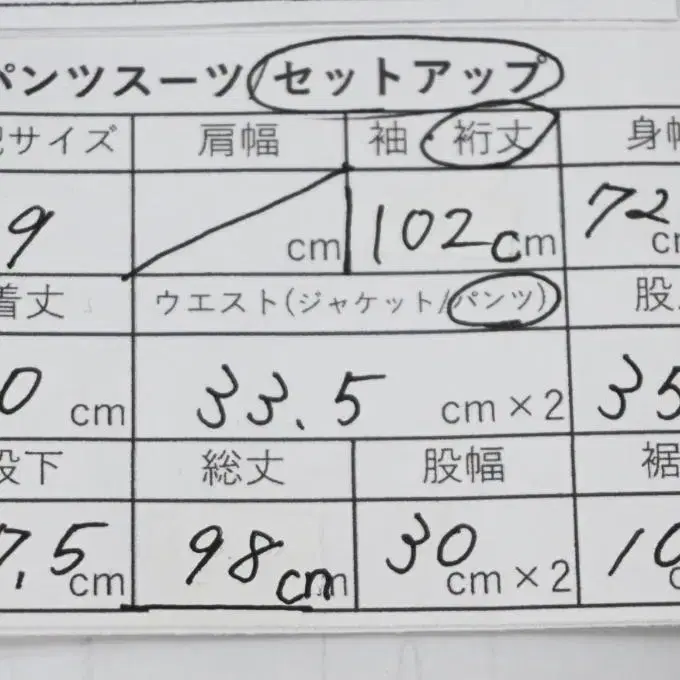 パンツスーツ/セットアップ
記サイズ 肩幅 袖・裄丈 身幅
9 cm 102cm 72 cm
着丈 ウエスト(ジャケット/パンツ) 股
0 cm 33.5 cm×2 35
股下 総丈 股幅 裾
7.5 cm 98cm 30 cm×2 10